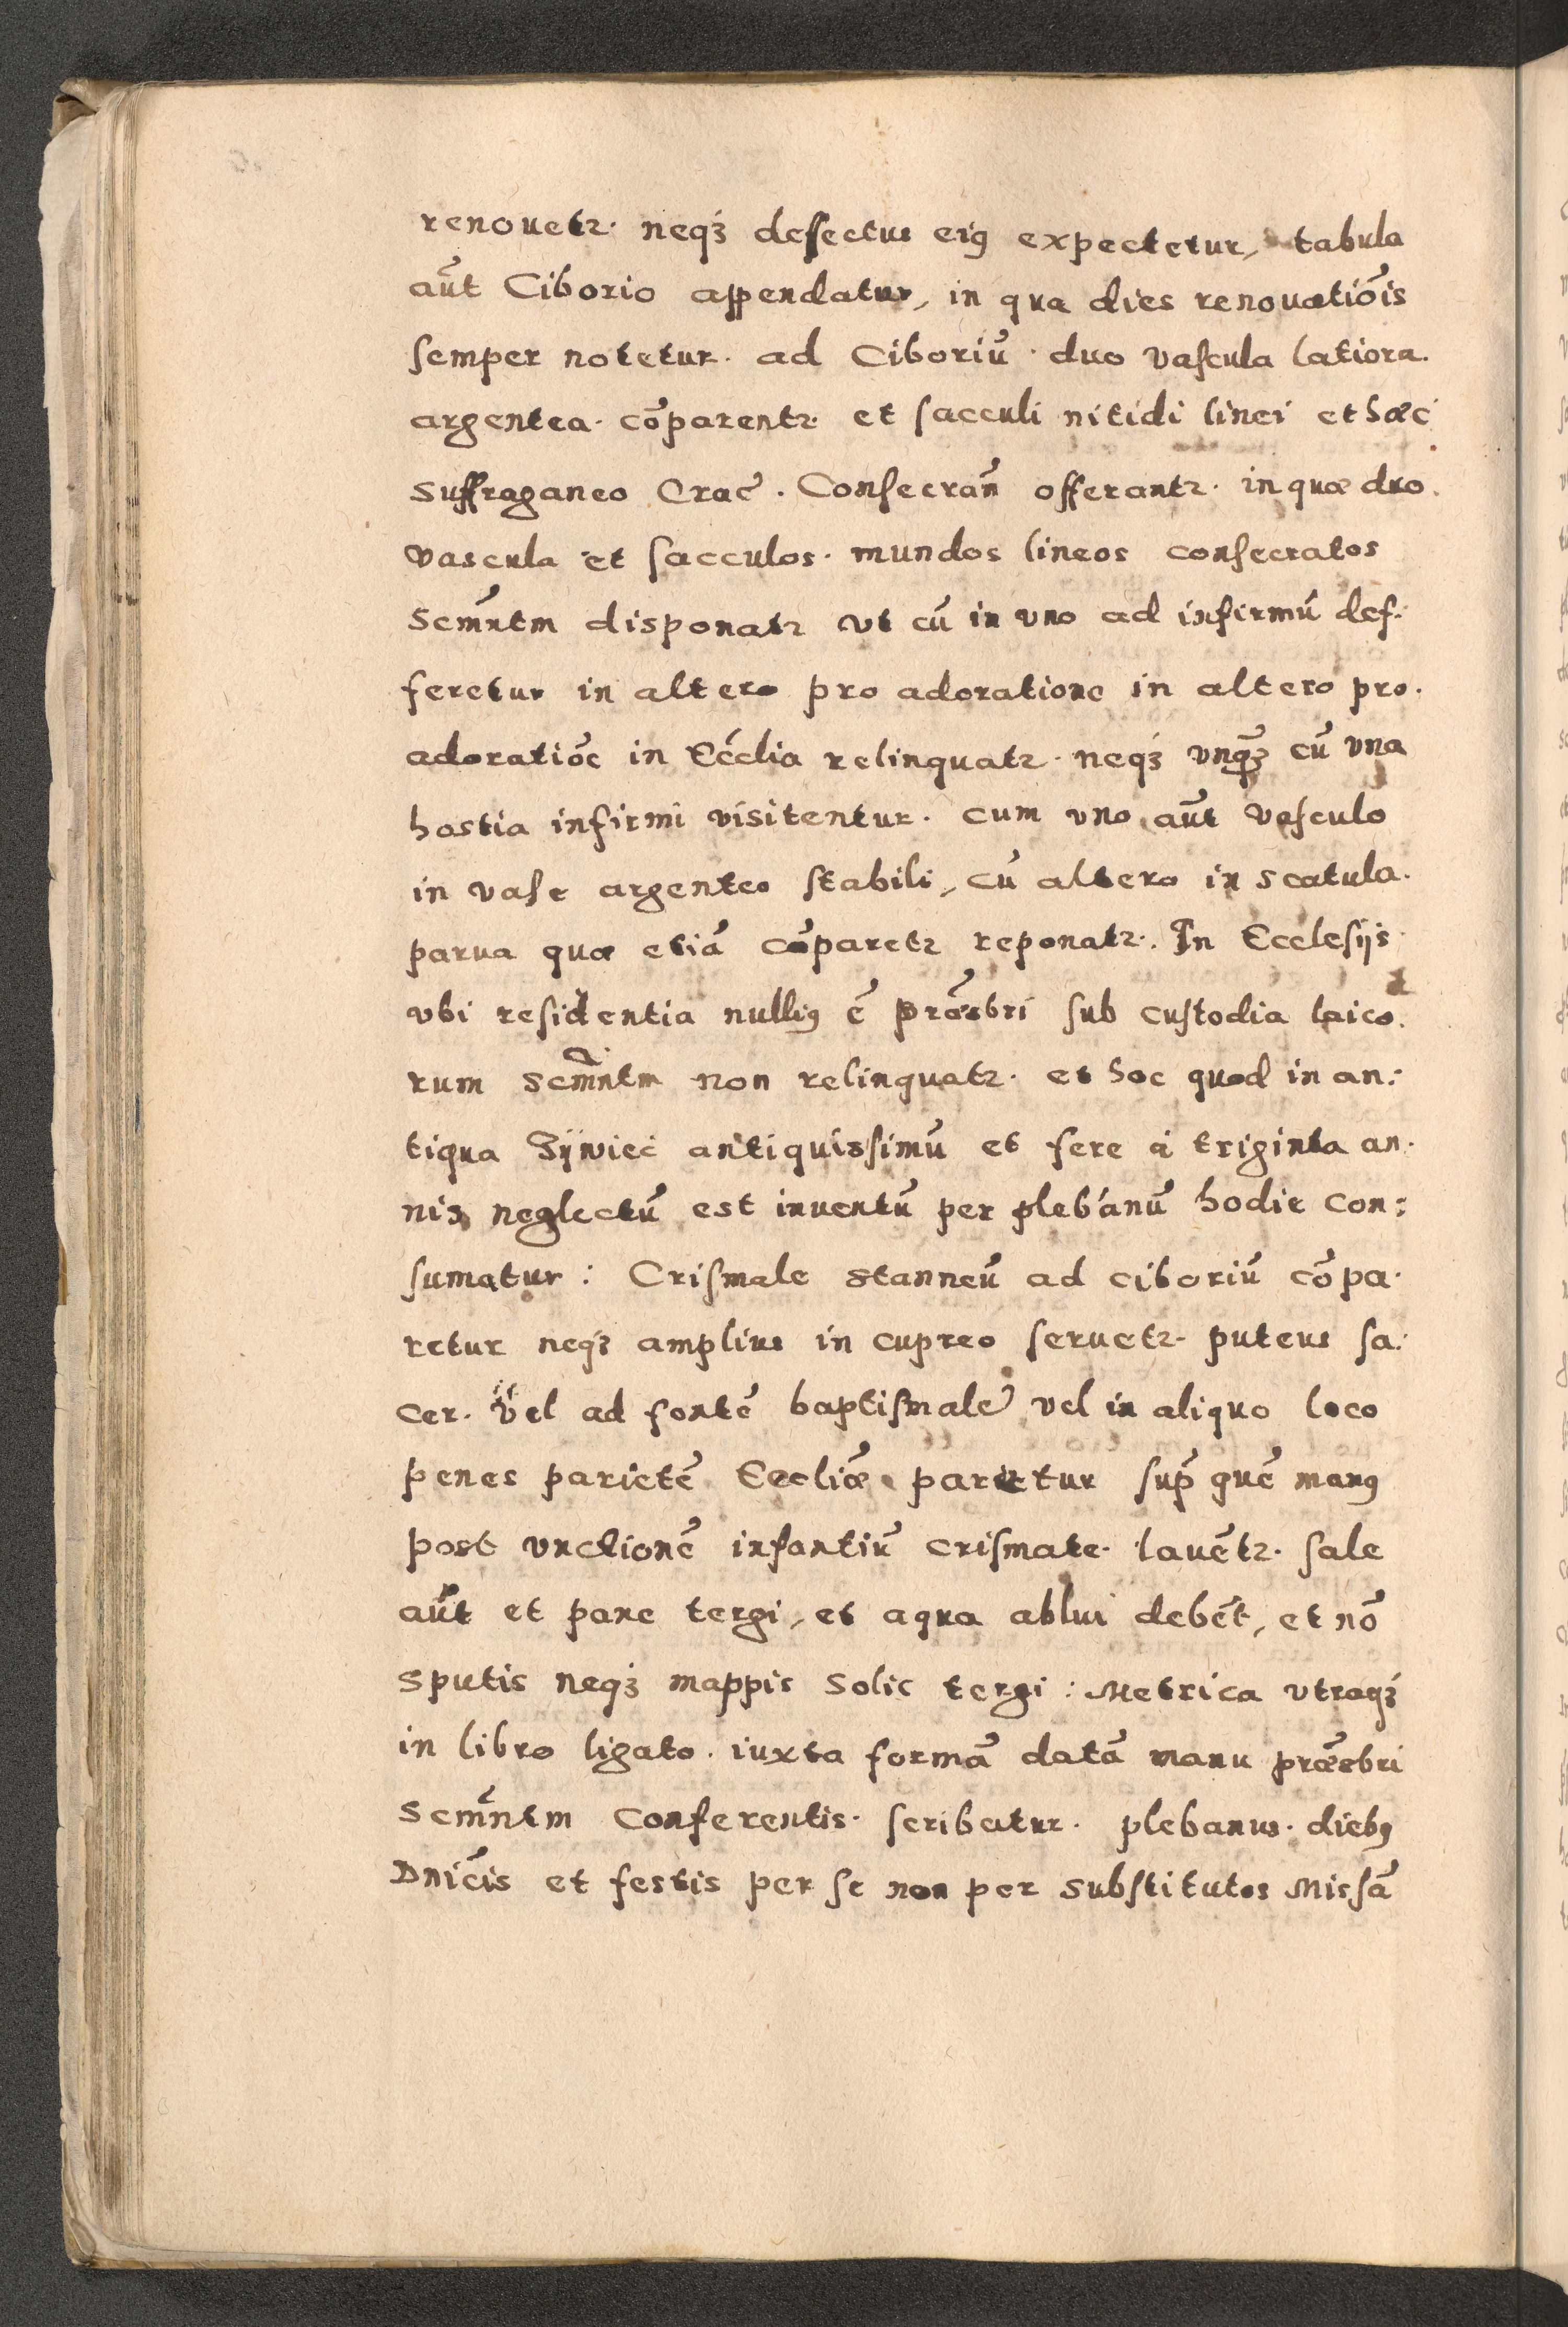 renouetr. neqʒ deffectus eiꝰ expectetur, tabula
aūt Ciborio appendatur, in qua dies renouatiōis
semper notetur. ad Ciboriū. duo vascula latiora.
argentea. cōparentr. et sacculi nitidi linei et hæc
Suffraganeo Crac̄. Consecran̄ offerantr. in quæ duo.
vascula et sacculos. mundos lineos consecratos
Scm̄ntm disponatr vt cū in vno ad infirmū def-
feretur in altero pro adoratione in altero pro.
adoratiōe in Ecc̄lia relinquatr. neqʒ vnqꝫ cū vna
hostia infirmi visitentur. Cum vno aūt vasculo
in vase argenteo stabili, cū altero in scatula.
parua quæ etiā cōparetr reponatr. In Ecclesijs
vbi residentia nulliꝰ ē præsbri sub custodia laico.
rum scm̄ntm non relinquatr. et hoc quod in an:
tiqua Zÿwiec antiquissimū et fere a triginta an.
nis neglectū est inuentū per plebanū hodie con:
sumatur: Crismale stanneū ad ciboriū cōpa.
retur neqʒ amplius in cupreo seruetr. puteus sa:
cer. vel ad fontē baptismalē vel in aliquo loco
penes parietē Eccliæ paretur sup̄ quē manꝰ
post vnctionē infantiū crismate. lauētr. sale
aūt et pane tergi, et aqua ablui debēt, et nō
sputis neqʒ mappis solic tergi: Metrica vtraqʒ
in libro ligato. iuxta formā datā manu præsbri
Scm̄ntm Conferentis. scribatur. plebanus. diebꝰ
Dnicīs et festis per se non per substitutos Missā